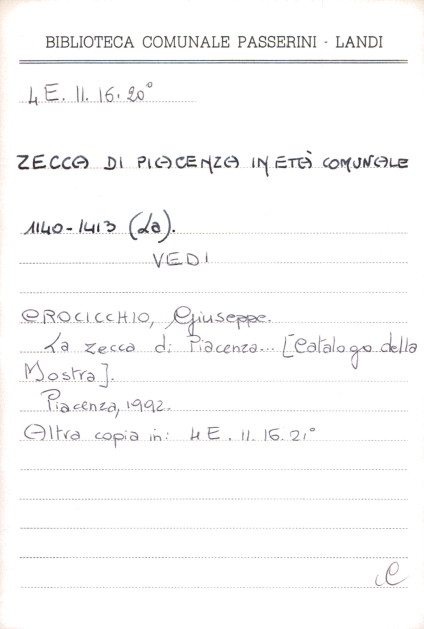 BIBLIOTECA COMUNALE PASSERINI - LANDI
4 E. 11. 16. 20°
ZECCA DI PIACENZA IN ETÀ COMUNALE
1140-1413 (La).
VEDI
CROCICCHIO, Giuseppe.
La zecca di Piacenza... [Catalogo della
Mostra].
Piacenza, 1992.
Altra copia in: 4 E. 11. 16. 21°